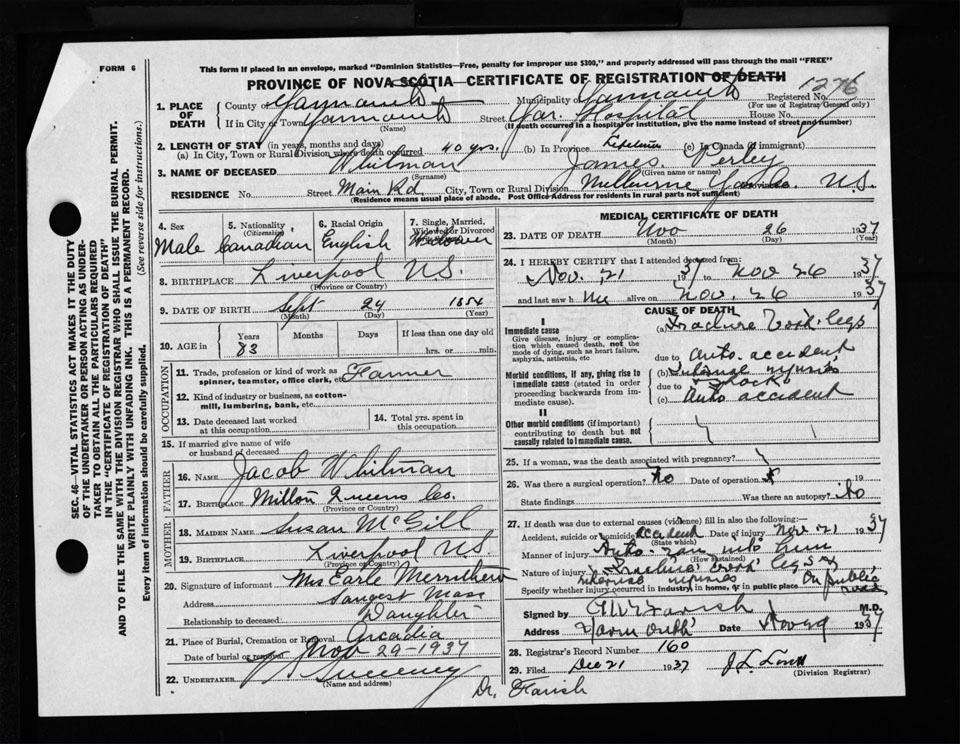 FORM 6
This form if placed in an envelope, marked "Dominion Statistics—Free, penalty for improper use $300," and properly addressed will pass through the mail "FREE"
PROVINCE OF NOVA SCOTIA—CERTIFICATE OF REGISTRATION OF DEATH
1276
1. PLACE OF DEATH
County of Yarmouth Municipality of Yarmouth Registered No.
(For use of Registrar General only)
If in City or Town Yarmouth Street Yar. Hospital House No.
(Name) (If death occurred in a hospital or institution, give the name instead of street and number)
2. LENGTH OF STAY (in years, months and days)
(a) In City, Town or Rural Division where death occurred 40 yrs. (b) In Province Lifetime (c) In Canada (if immigrant)
3. NAME OF DECEASED Whitman James Perley
(Surname) (Given name or names)
RESIDENCE No. Street Main Rd City, Town or Rural Division Melbourne Province N.S.
(Residence means usual place of abode. Post Office Address for residents in rural parts not sufficient)
4. Sex 5. Nationality (Citizenship) 6. Racial Origin 7. Single, Married, Widowed or Divorced
Male Canadian English Widower
8. BIRTHPLACE Liverpool N.S.
(Province or County)
9. DATE OF BIRTH Sept 24 1854
(Month) (Day) (Year)
10. AGE in Years Months Days If less than one day old
83 hrs. or min.
OCCUPATION
11. Trade, profession or kind of work as spinner, teamster, office clerk, etc. Farmer
12. Kind of industry or business, as cotton-mill, lumbering, bank, etc.
13. Date deceased last worked at this occupation
14. Total yrs. spent in this occupation
15. If married give name of wife or husband of deceased
FATHER
16. NAME Jacob Whitman
17. BIRTHPLACE Milton Queens Co.
(Province or County)
MOTHER
18. MAIDEN NAME Susan McGill
19. BIRTHPLACE Liverpool N.S.
(Province or County)
20. Signature of informant Mrs Earle Merrithew
Address Mass
Relationship to deceased Daughter
21. Place of Burial, Cremation or Removal Arcadia
Date of burial or removal Nov 29-1937
22. UNDERTAKER Sweeney
(Name and address)
Dr. Farish
MEDICAL CERTIFICATE OF DEATH
23. DATE OF DEATH Nov 26 1937
(Month) (Day) (Year)
24. I HEREBY CERTIFY that I attended deceased from:
Nov. 21 1937 to Nov 26 1937
and last saw him alive on Nov. 26 1937
CAUSE OF DEATH
I
Immediate cause
Give disease, injury or complication which caused death, not the mode of dying, such as heart failure, asphyxia, asthenia, etc
(a) Fracture both legs
due to Auto. accident
Morbid conditions, if any, giving rise to immediate cause (stated in order proceeding backwards from immediate cause).
(b) Internal injuries
due to & shock
(c) Auto accident
II
Other morbid conditions (if important) contributing to death but not causally related to immediate cause.
25. If a woman, was the death associated with pregnancy?
26. Was there a surgical operation? No Date of operation 19
State findings Was there an autopsy? No
27. If death was due to external causes (violence) fill in also the following:—
Accident, suicide or homicide accident Date of injury Nov 21 1937
(State which)
Manner of injury Auto- ran into him
(How sustained)
Nature of injury Fracture both legs &
internal injuries
Specify whether injury occurred in industry, in home, or in public place On public road
Signed by G W T Farish M.D.
Address Yarmouth Date Nov 29 1937
28. Registrar's Record Number 160
29. Filed Dec 21 1937
(Division Registrar)
SEC. 46—VITAL STATISTICS ACT MAKES IT THE DUTY
OF THE UNDERTAKER OR PERSON ACTING AS UNDER-
TAKER TO OBTAIN ALL THE PARTICULARS REQUIRED
IN THE "CERTIFICATE OF REGISTRATION OF DEATH"
AND TO FILE THE SAME WITH THE DIVISION REGISTRAR WHO SHALL ISSUE THE BURIAL PERMIT.
WRITE PLAINLY WITH UNFADING INK. THIS IS A PERMANENT RECORD.
Every item of information should be carefully supplied. (See reverse side for instructions.)